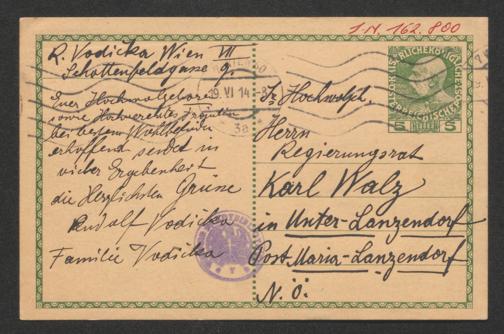 I.N. 162.800
R. Vodička Wien VII
Schottenfeldgasse 9.
Euer Hochwolgeboren
sowie Hochverehrtes Fräulein
bei bestem Wohlbefinden
erhoffend sendet in
vieler Ergebenheit
die Herzlichsten Grüsse
Rudolf Vodička
Familie Vodička
19. VI 14
3a
5 HELLER 5
Sr. Hochwolgb.
Herrn
Regierungsrat
Karl Walz
in Unter-Lanzendorf
Post Maria-Lanzendorf
N.Ö.